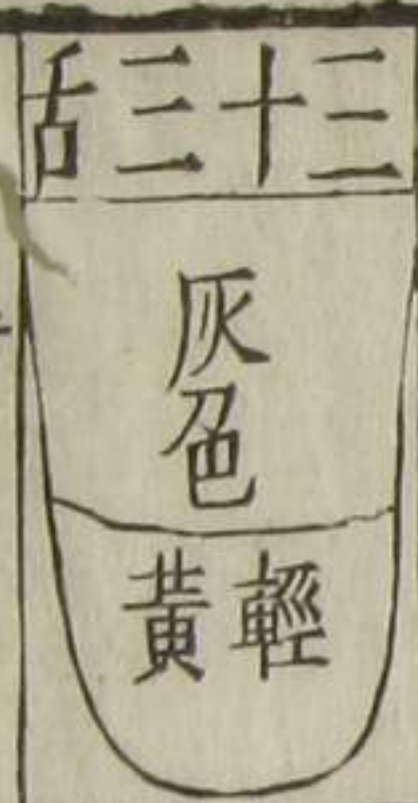 三十三舌
灰色
輕黃